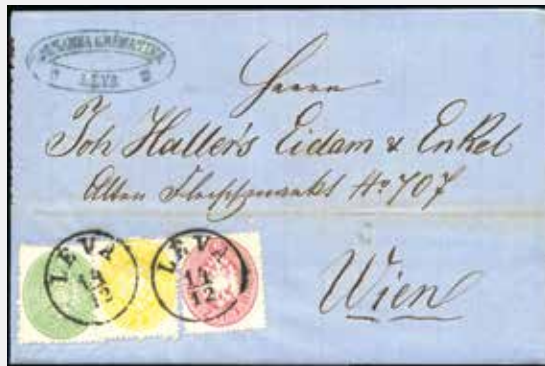 LÉVA
Herrn
Joh Haller's Eidam & Enkel
Alten Fleischmarkt No 707
LÉVA
14
12
LÉVA
14
12
Wien